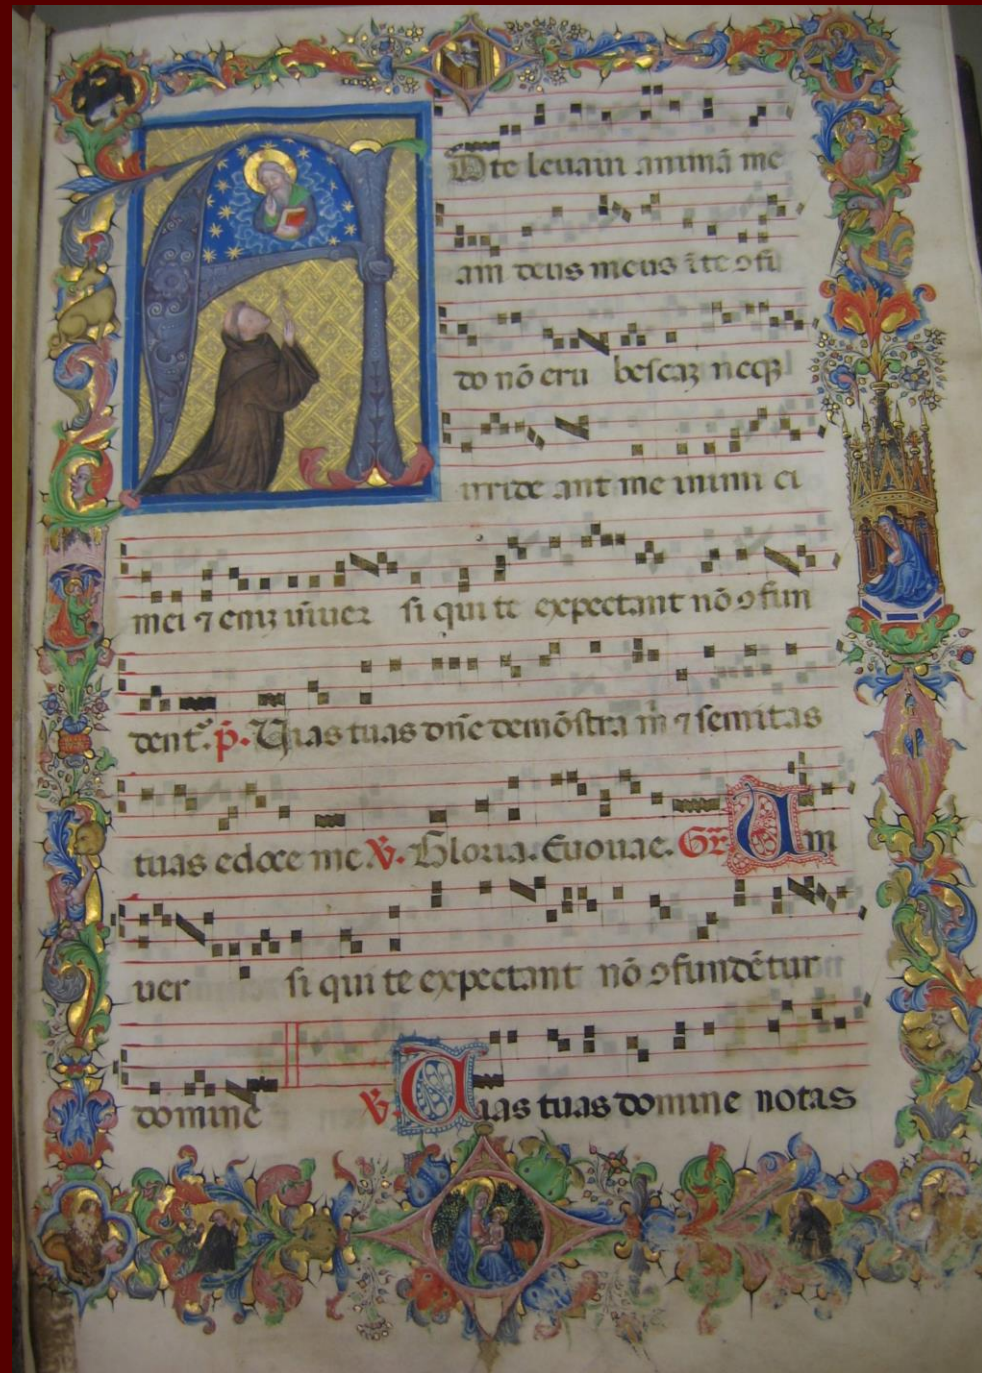 AD te levavi animā me
am deus meus ī te ꝯfi
do nō eru bescaꝫ neqꝫ
irride ant me inimi ci
mei ⁊ eniꝫ univer si qui te expectant nō ꝯfun
dent̃. p̄. Vias tuas dñe demōstra m̄ ⁊ semitas
tuas edoce me. V̄. Gloria. Euouae. Gr̄ Uni
ver si qui te expectant nō ꝯfundētur
domine V̄. Vias tuas domine notas